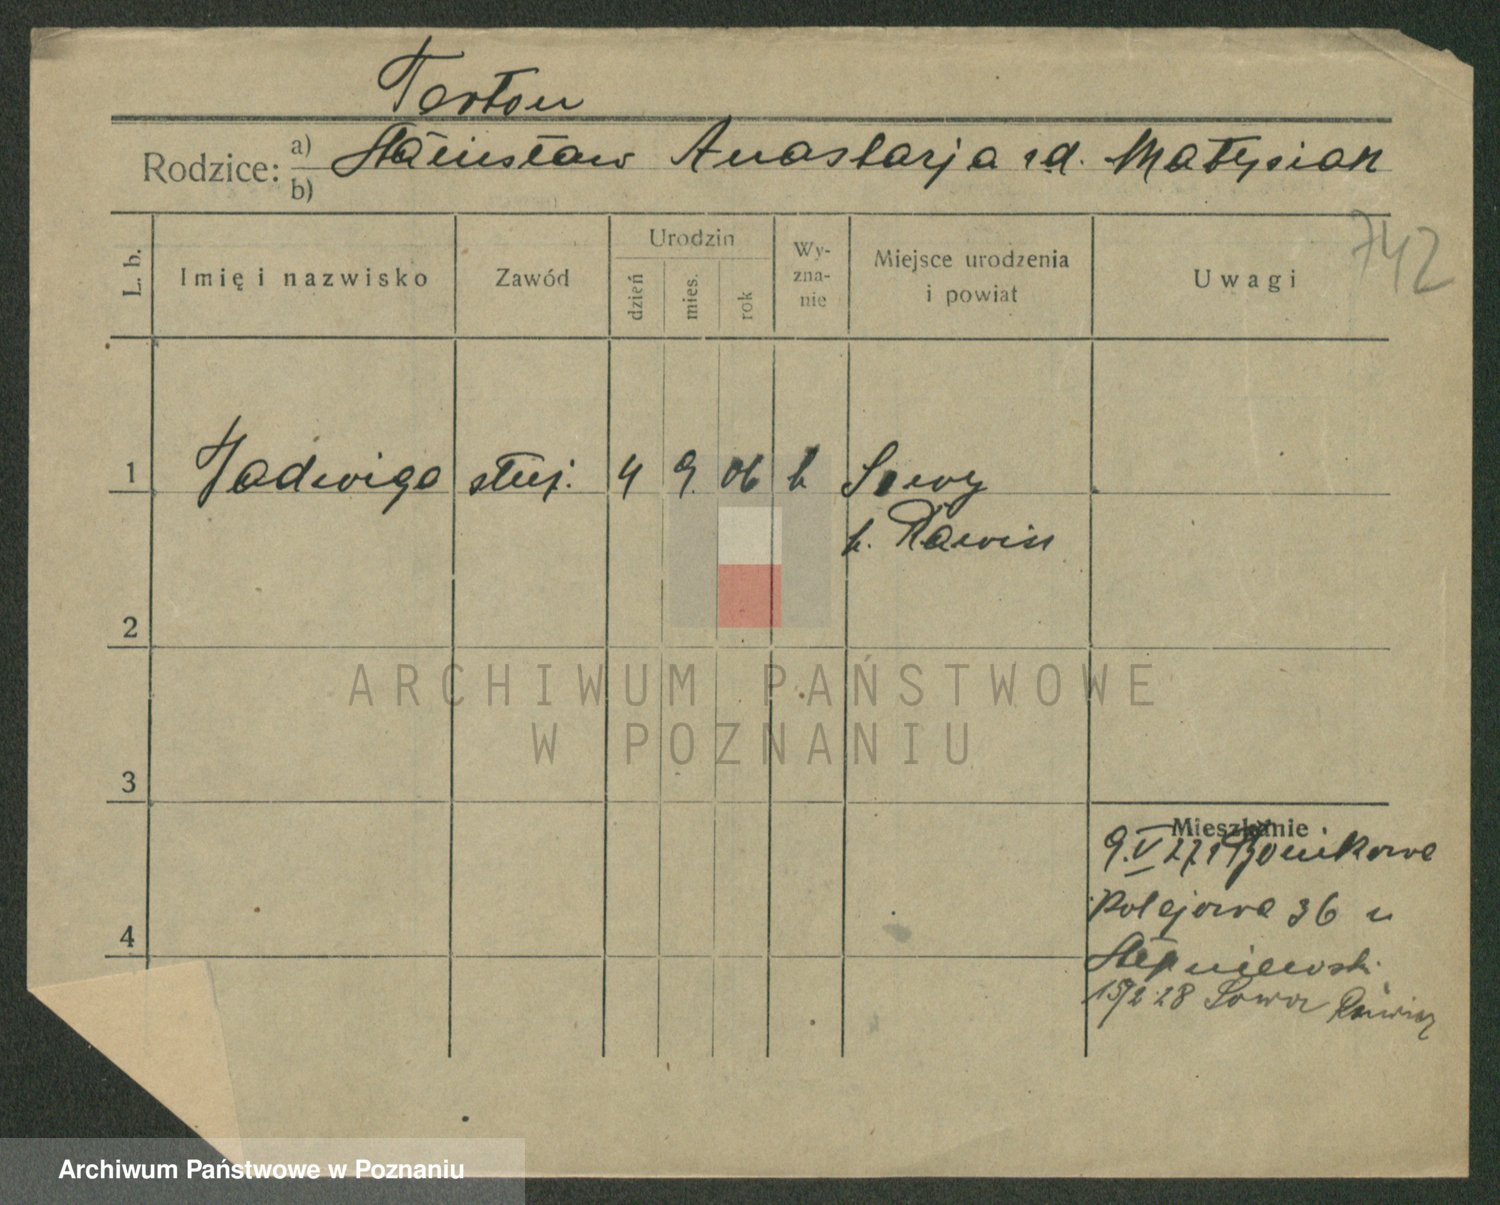 Terton
Rodzice: a) Stanisław Anastazja zd. Matysiak
b)
742
L. b.
Imię i nazwisko
Zawód
Urodzin
dzień
mies.
rok
Wy-
zna-
nie
Miejsce urodzenia
i powiat
Uwagi
1 Jadwiga służ. 4 9. 06 k Sowy
p. Rawicz
2
3
4
Mieszkanie
9.V 27 z
Kolejowa 36 u
15/2 28 Sowy Rawicz
ARCHIWUM PAŃSTWOWE
W POZNANIU
Archiwum Państwowe w Poznaniu